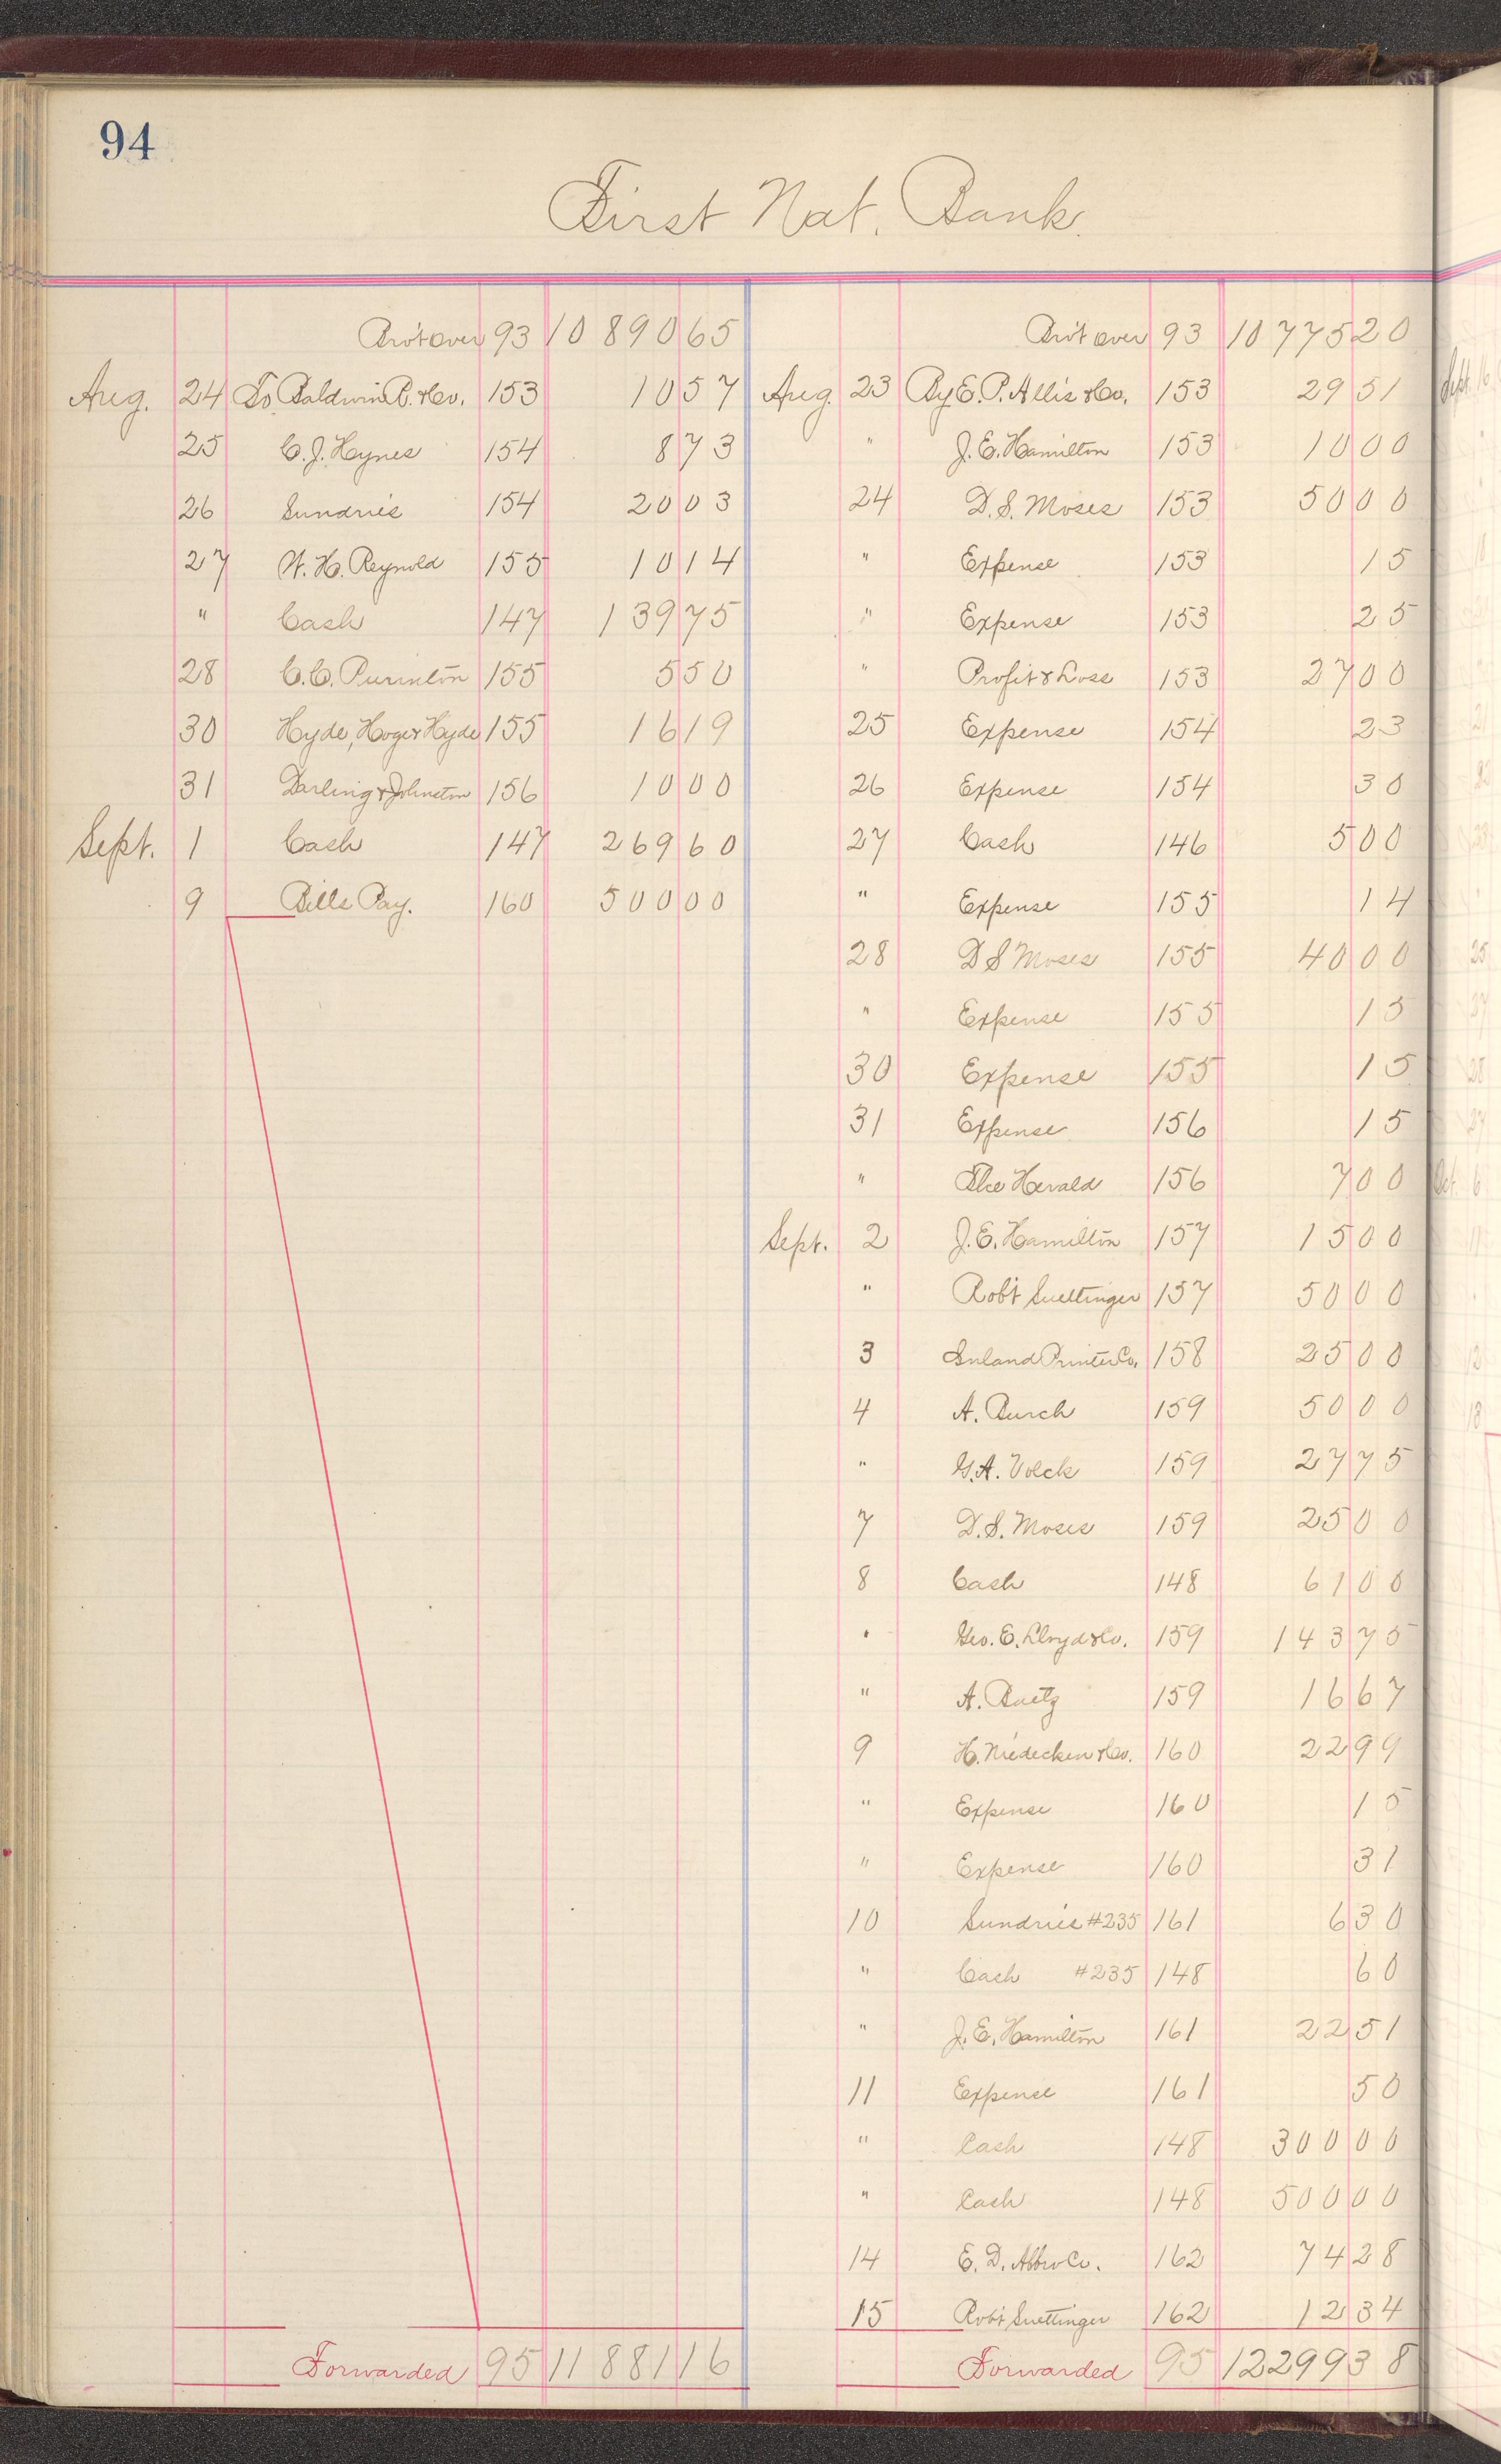 94
First Nat. Bank.
Bro't over 93 10 890 65
Aug. 24 To Baldwin P. & Co. 153 10 57
25 C. J. Hynes 154 8 73
26 Sundries 154 20 03
27 W. H. Reynold 155 10 14
" Cash 147 139 75
28 C. C. Purinton 155 5 50
30 Hyde, Hoge & Hyde 155 16 19
31 Darling & Johnston 156 10 00
Sept. 1 Cash 147 269 60
9 Bills Pay. 160 500 00
Forwarded 95 11 881 16
Bro't over 93 10 775 20
Aug. 23 By E. P. Allis & Co. 153 29 51
" J. E. Hamilton 153 10 00
24 D. S. Moses 153 50 00
" Expense 153 15
" Expense 153 25
" Profit & Loss 153 27 00
25 Expense 154 23
26 Expense 154 30
27 Cash 146 5 00
" Expense 155 14
28 D S Moses 155 40 00
" Expense 155 15
30 Expense 155 15
31 Expense 156 15
" The Herald 156 7 00
Sept. 2 J. E. Hamilton 157 15 00
" Rob't Suettinger 157 50 00
3 Inland Printer Co. 158 25 00
4 A. Burch 159 50 00
" G. A. Volck 159 27 75
7 D. S. Moses 159 25 00
8 Cash 148 61 00
" Geo. E. Lloyd & Co. 159 143 75
" A. Baetz 159 16 67
9 H. Niedecken & Co. 160 22 99
" Expense 160 15
" Expense 160 31
10 Sundries #235 161 6 30
" Cash #235 148 60
" J. E. Hamilton 161 22 51
11 Expense 161 50
" Cash 148 300 00
" Cash 148 500 00
14 E. D. Co. 162 74 28
15 Rob't Suettinger 162 12 34
Forwarded 95 12299 38